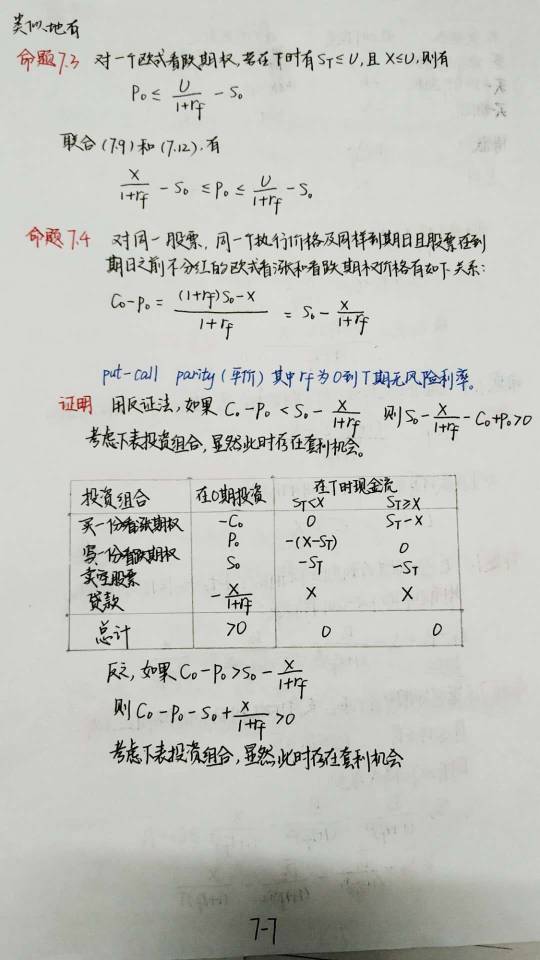 类似地有
命题7.3 对一个欧式看跌期权,若在T时有 S_T ≤ U,且 X≤U,则有
P₀ ≤ U/(1+r_f) - S₀
联合(7.9)和(7.12).有
X/(1+r_f) - S₀ ≤ P₀ ≤ U/(1+r_f) - S₀
命题7.4 对同一股票,同一个执行价格及同样到期日且股票在到
期日之前不分红的欧式看涨和看跌期权价格有如下关系:
C₀-P₀ = ((1+r_f)S₀-X)/(1+r_f) = S₀ - X/(1+r_f)
put-call parity(平价)其中r_f为0到T期无风险利率。
证明 用反证法,如果 C₀-P₀ < S₀ - X/(1+r_f) 则 S₀ - X/(1+r_f) - C₀+P₀>0
考虑下表投资组合,显然此时存在套利机会。
投资组合 在0期投资 在T时现金流
S_T<X S_T≥X
买一份看涨期权 -C₀ 0 S_T-X
写一份看跌期权 P₀ -(X-S_T) 0
卖空股票 S₀ -S_T -S_T
贷款 -X/(1+r_f) X X
总计 >0 0 0
反之,如果 C₀-P₀>S₀ - X/(1+r_f)
则 C₀-P₀-S₀+X/(1+r_f) >0
考虑下表投资组合,显然此时存在套利机会
7-7